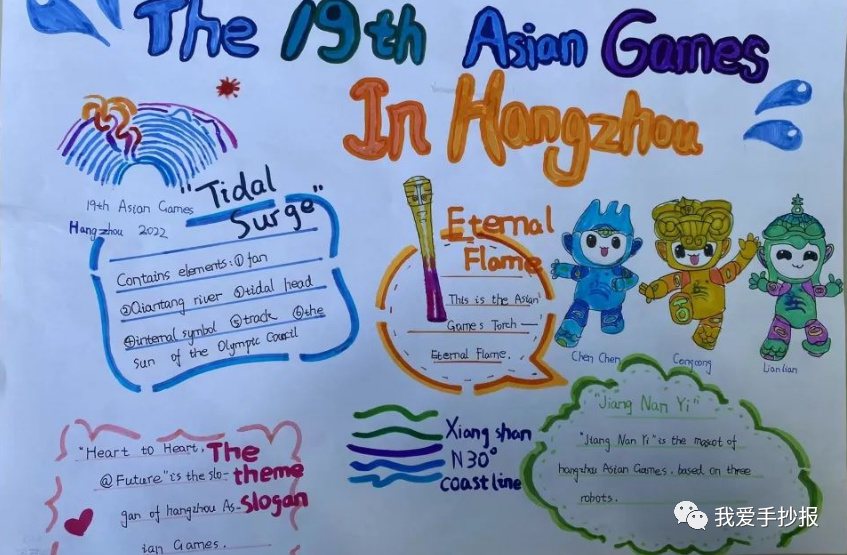 The 19th Asian Games
In Hangzhou
19th Asian Games
Hangzhou 2022
"Tidal
Surge"
Contains elements:①fan
②Qiantang river ③tidal head
④internal symbol ⑤track ⑥the
sun of the Olympic Council
Eternal
Flame
This is the Asian
Games Torch —
Eternal Flame.
Chen Chen
Congcong
Lianlian
"Heart to Heart,
@Future"is the slo-
gan of hangzhou As-
ian Games.
The
theme
slogan
Xiang shan
N30°
coastline
"Jiang Nan Yi"
"Jiang Nan Yi"is the mascot of
hangzhou Asian Games, based on three
robots.
我爱手抄报